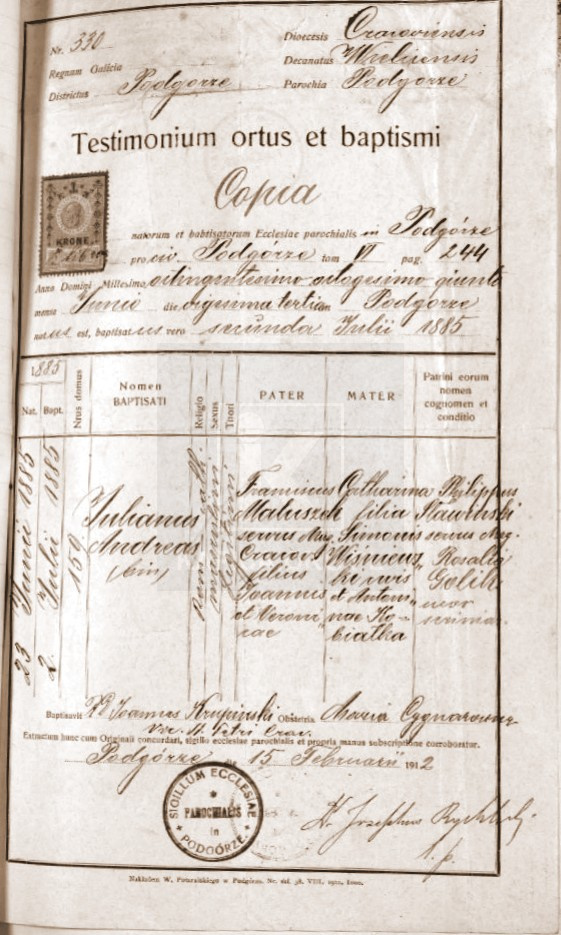 Nr. 330
Dioecesis Cracoviensis
Regnum Galicia
Decanatus Wieliciensis
Districtus Podgorze
Parochia Podgorze
Testimonium ortus et baptismi
Copia
1
KRONE
natorum et babtisatorum Ecclesiae parochialis in Podgórze
pro civ. Podgórze tom VI pag. 244
Anno Domini Millesimo octingentesimo octogesimo quinto
mense Junii die vigesima tertia in Podgorze
natus est, baptisatus vero secunda Julii 1885
1885
Nat. Bapt.
Nrus domus
Nomen
BAPTISATI
Religio
Sexus
Thori
PATER
MATER
Patrini eorum
nomen
cognomen et
conditio
23 Junii 1885
2. Julii 1885
150
Julianus
Andreas
(bin)
Rom. cath.
masculini
legitimi
Franciscus
Matuszek
servus
Cracov
filius
Joannis
et Veroni
cae
Catharina
filia
Simonis
Wiśniews
ki
et Anton
nae Ko-
białka
Philippus
Sławiński
servus
Rosalia
Golik
uxor
Baptisavit Joannes Krupiński Obstetrix Maria
Vic. St. Petri Crac.
Extractum hunc cum Originali concordari, sigillo ecclesiae parochialis et propria manus subscriptione corroboratur.
Podgórze, 15 Februarii 1912
SIGILLUM ECCLESIAE
PAROCHIALIS
in
PODGÓRZE
X. Josephus